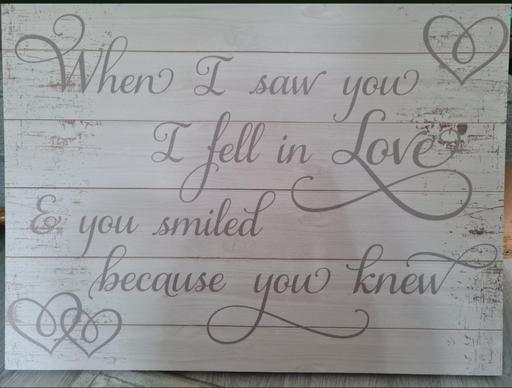 When I saw you
I fell in Love
& you smiled
because you knew